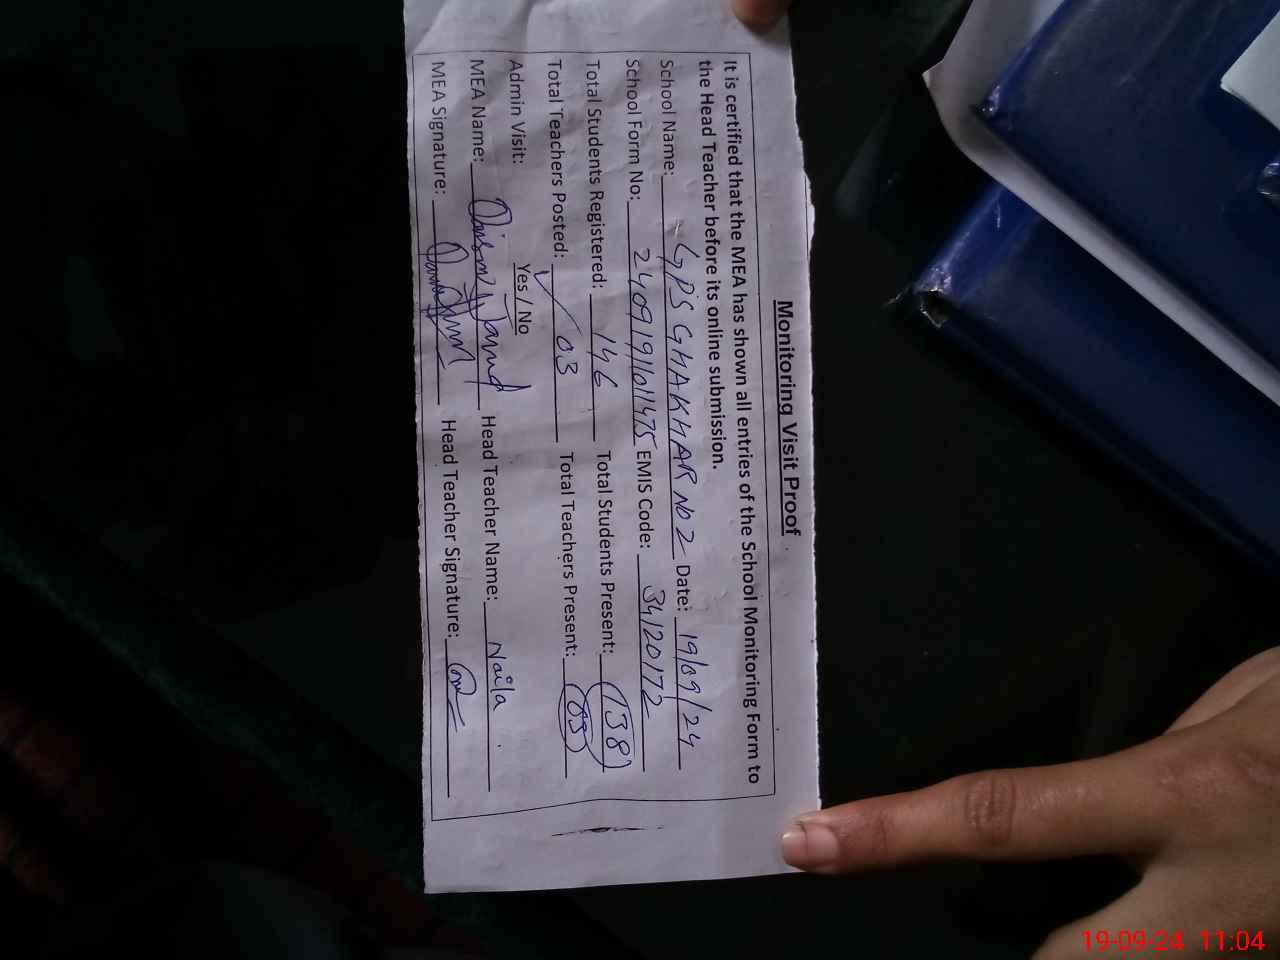 Monitoring Visit Proof
It is certified that the MEA has shown all entries of the School Monitoring Form to
the Head Teacher before its online submission.
School Name: GPS GHAKHAR No 2 Date: 19/09/24
School Form No: EMIS Code: 34120172
Total Students Registered: 146 Total Students Present: 138
Total Teachers Posted: 03 Total Teachers Present: 03
Admin Visit: Yes / No
MEA Name: Head Teacher Name: Naila
MEA Signature: Head Teacher Signature:
19-09-24 11:04